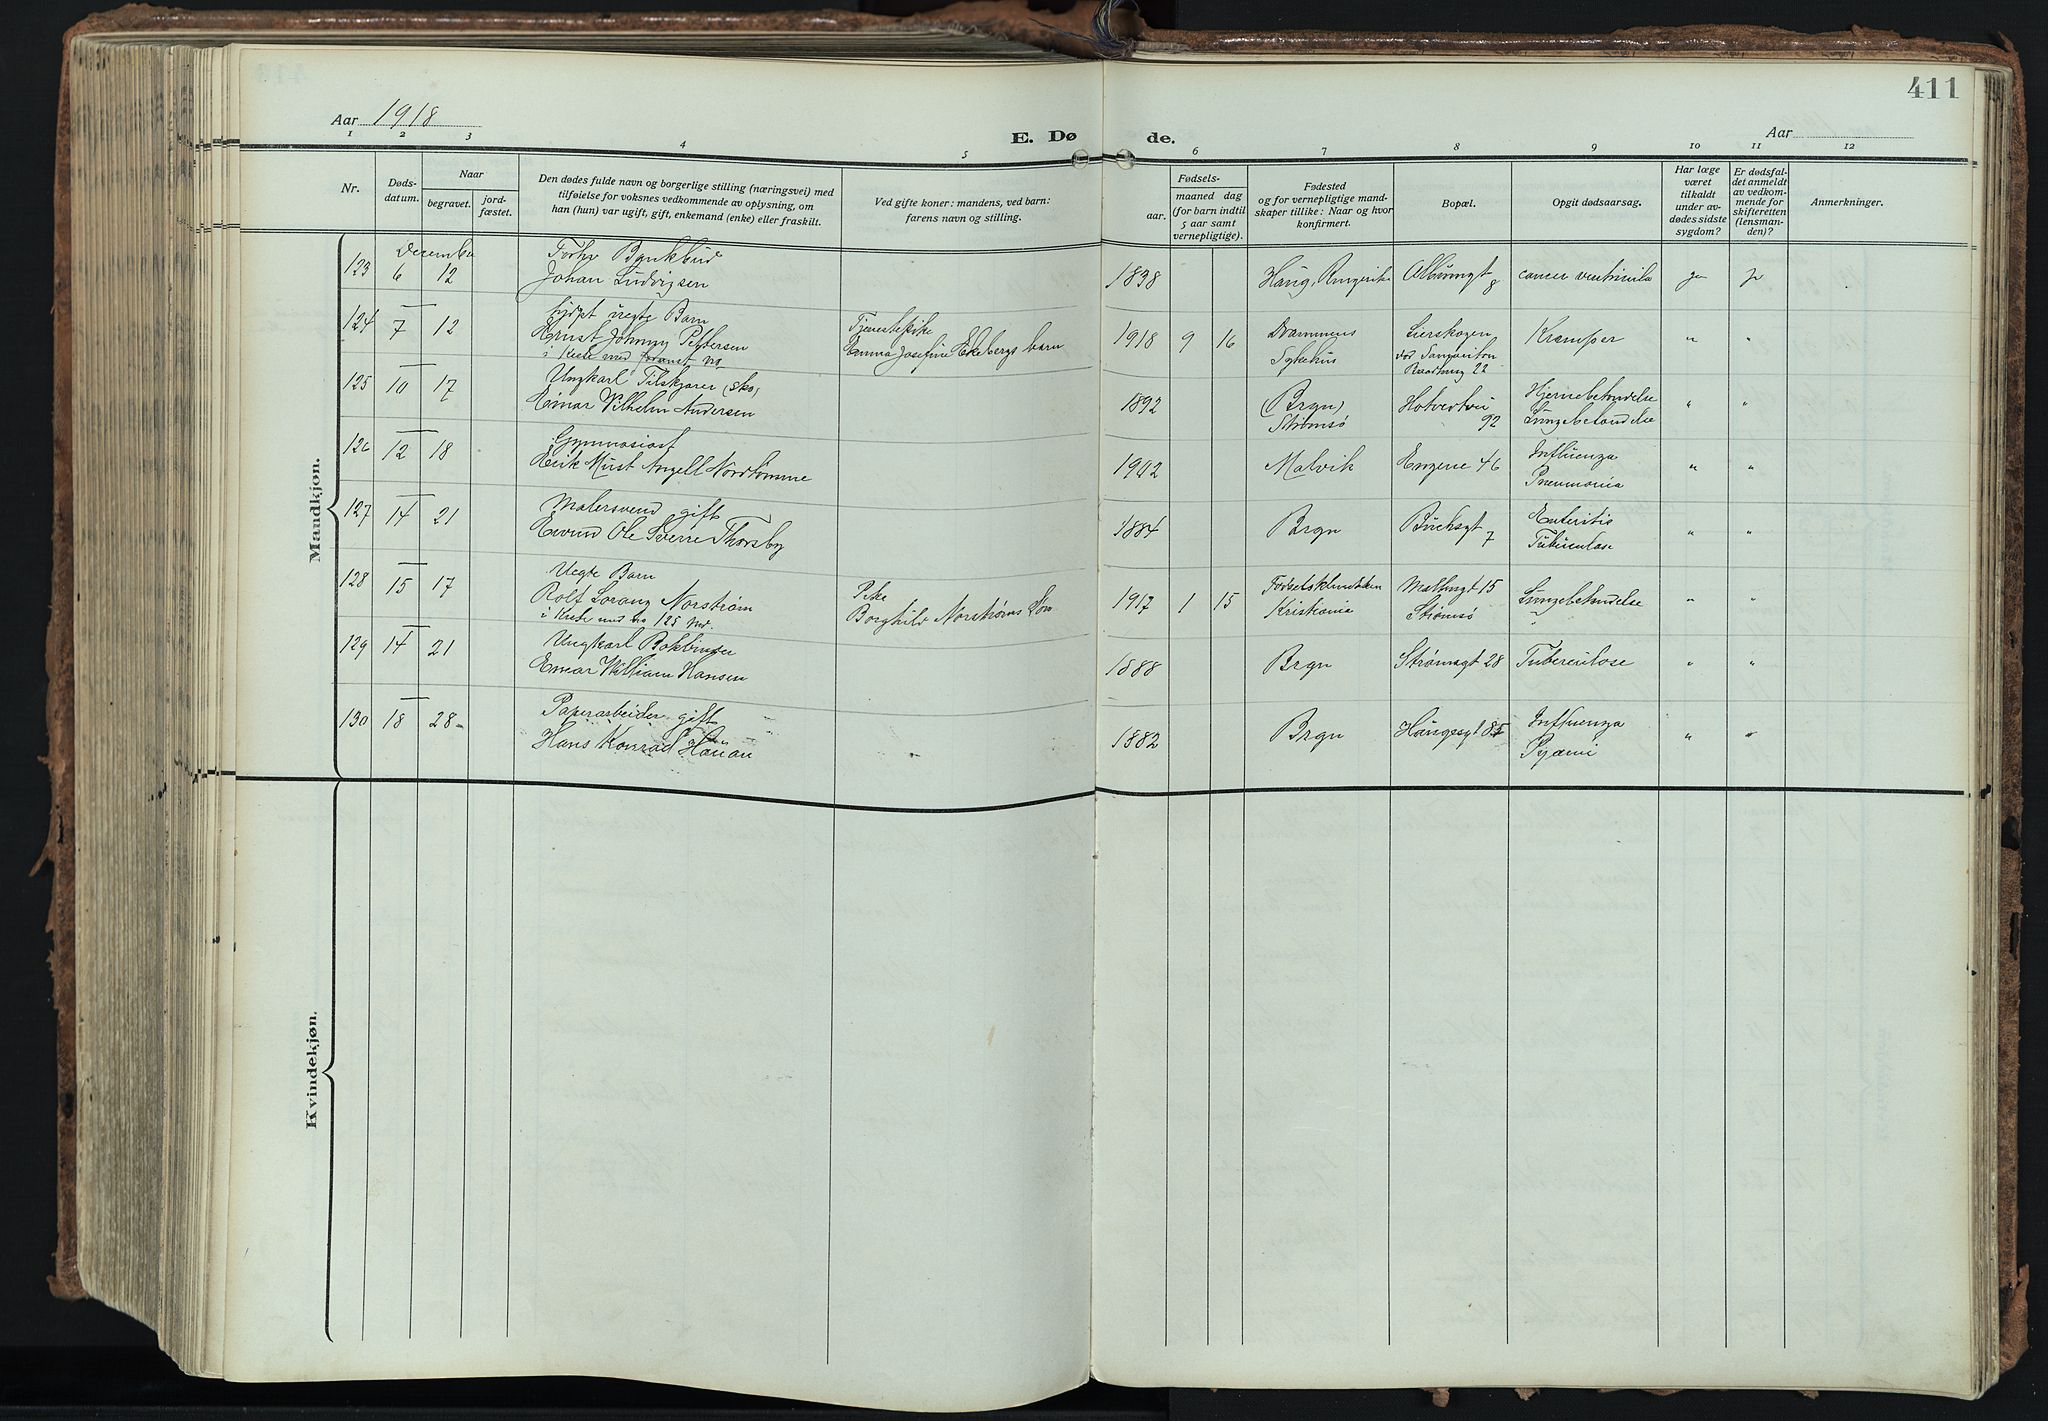 411
Aar 1918
E. Dø de.
Aar
1 2 3 4 5 6 7 8 9 10 11 12
Nr.
Døds-
datum.
Naar
begravet.
jord-
fæstet.
Den dødes fulde navn og borgerlige stilling (næringsvei) med
tilføielse for voksnes vedkommende av oplysning, om
han (hun) var ugift, gift, enkemand (enke) eller fraskilt.
Ved gifte koner: mandens, ved barn:
farens navn og stilling.
Fødsels-
aar.
maaned dag
(for barn indtil
5 aar samt
vernepligtige).
Fødested
og for vernepligtige mand-
skaper tillike: Naar og hvor
konfirmert.
Bopæl.
Opgit dødsaarsag.
Har læge
været
tilkaldt
under av-
dødes sidste
sygdom?
Er dødsfal-
det anmeldt
av vedkom-
mende for
skifteretten
(lensman-
den)?
Anmerkninger.
Mandkjøn.
December
123 6 12
Forhv Bankbud
Johan Ludvigsen
1838 Haug, Ringerike
8
cancer ventriculi
ja ja
124 7 12
uegte Barn
Ernst Johnny Pettersen
i Kiste med
Tjenestepike
Emma Josefine Ekebergs barn
1918 9 16
Drammens
Sykehus
Lierskogen
22
Kramper
" "
125 10 17
Ungkarl Tilskjærer (sko)
Einar Vilhelm Andersen
1892
(Brgn)
Strømsø
92
Hjernebetendelse
Lungebetendelse
" "
126 12 18
Gymnasiast
Erik Must Angell Nordtømme
1902 Malvik
Engene 46
Influenza
Pneumonia
" "
127 14 21
Malersvend gift
Eivind Ole Sverre Thorsby
1884 Brgn
7
Enteritis
Tuberculose
" "
128 15 17
Uegte Barn
Rolf Lorang Norstrøm
i Kiste med no 125
Pike
Borghild Norstrøms Søn
1917 1 15
Fødselsklinikken
Kristiania
15
Strømsø
Lungebetendelse
" "
129 14 21
Ungkarl Bokbinder
Einar William Hansen
1888 Brgn Strømsgt 28 Tuberculose
" "
130 18 28
Papirarbeider gift
Hans Konrad Hauan
1882 Brgn Haugesgt 85
Influenza
Pyæmi
" "
Kvindekjøn.